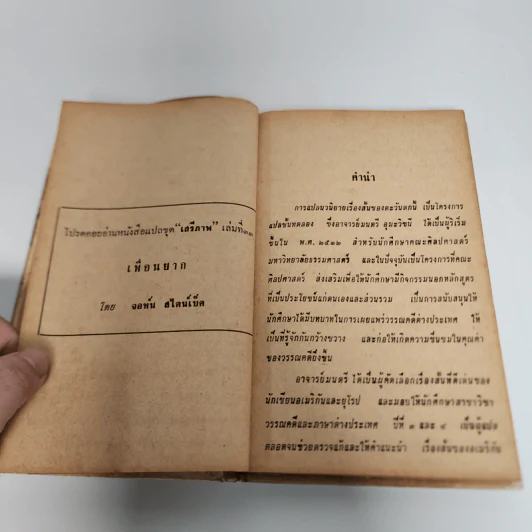 โปรดคอยอ่านหนังสือแปลชุด "เสรีภาพ" เล่มที่๓๓
เพื่อนยาก
โดย จอห์น สไตน์เบ็ค
คำนำ
การแปลนวนิยายเรื่องสั้นของตะวันตกนี้ เป็นโครงการ
แปลขั้นทดลอง ซึ่งอาจารย์มนตรี อุมะวิชนี ได้เป็นผู้ริเริ่ม
ขึ้นใน พ.ศ. ๒๕๑๒ สำหรับนักศึกษาคณะศิลปศาสตร์
มหาวิทยาลัยธรรมศาสตร์ และในปัจจุบันเป็นโครงการที่คณะ
ศิลปศาสตร์ ส่งเสริมเพื่อให้นักศึกษามีกิจกรรมนอกหลักสูตร
ที่เป็นประโยชน์แก่ตนเองและส่วนรวม เป็นการสนับสนุนให้
นักศึกษาได้มีบทบาทในการเผยแพร่วรรณคดีต่างประเทศ ให้
เป็นที่รู้จักกันกว้างขวาง และก่อให้เกิดความชื่นชมในคุณค่า
ของวรรณคดียิ่งขึ้น
อาจารย์มนตรี ได้เป็นผู้คัดเลือกเรื่องสั้นที่ดีเด่นของ
นักเขียนอเมริกันและยุโรป และมอบให้นักศึกษาสาขาวิชา
วรรณคดีและภาษาต่างประเทศ ปีที่ ๓ และ ๔ เป็นผู้แปล
ตลอดจนช่วยตรวจแก้และให้คำแนะนำ เรื่องสั้นของอเมริกัน